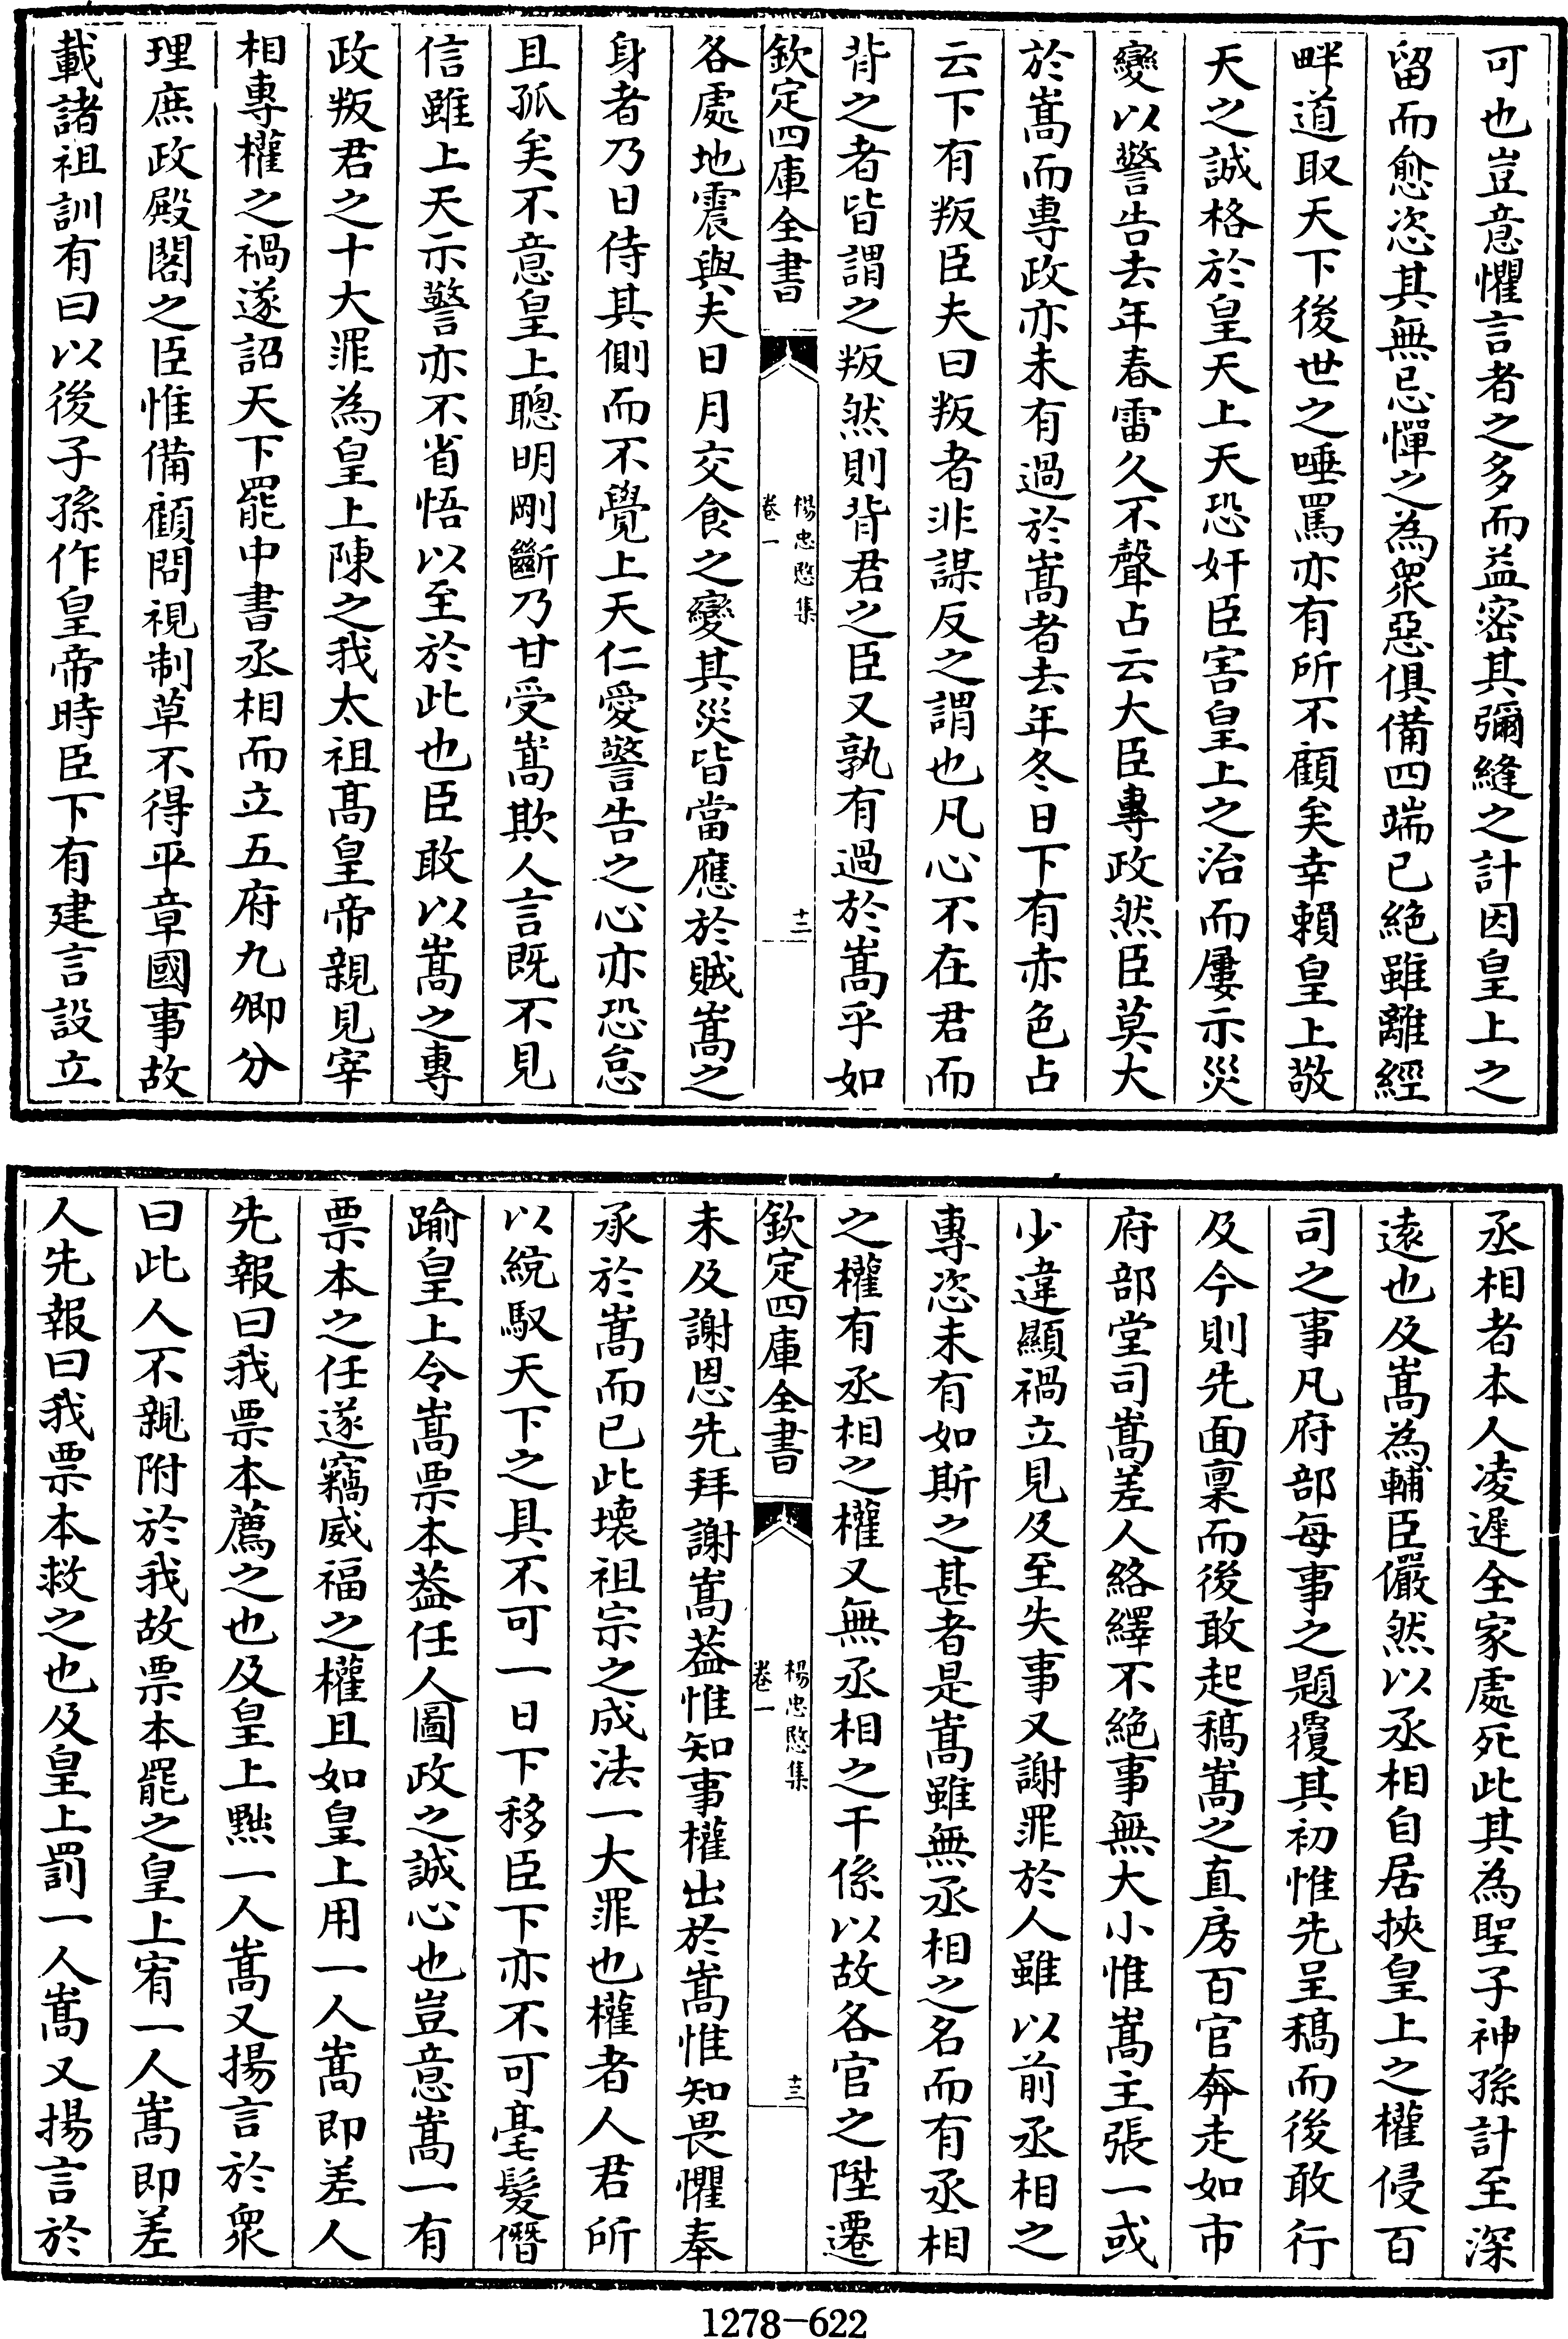 可也豈意懼言者之多而益密其彌縫之計因皇上之
留而愈恣其無忌憚之為衆惡俱備四端已絶雖離經
畔道取天下後世之唾罵亦有所不顧矣幸賴皇上敬
天之誠格於皇天上天恐奸臣害皇上之治而屢示災
變以警告去年春雷久不聲占云大臣專政然臣莫大
於嵩而專政亦未有過於嵩者去年冬日下有赤色占
云下有叛臣夫曰叛者非謀反之謂也凡心不在君而
背之者皆謂之叛然則背君之臣又孰有過於嵩乎如
欽定四庫全書
楊忠愍集
卷一
十二
各處地震與夫日月交食之變其災皆當應於賊嵩之
身者乃日侍其側而不覺上天仁愛警告之心亦恐怠
且孤矣不意皇上聰明剛斷乃甘受嵩欺人言既不見
信雖上天示警亦不省悟以至於此也臣敢以嵩之專
政叛君之十大罪為皇上陳之我太祖髙皇帝親見宰
相專權之禍遂詔天下罷中書丞相而立五府九卿分
理庶政殿閣之臣惟備顧問視制草不得平章國事故
載諸祖訓有曰以後子孫作皇帝時臣下有建言設立
丞相者本人凌遲全家處死此其為聖子神孫計至深
逺也及嵩為輔臣儼然以丞相自居挾皇上之權侵百
司之事凡府部每事之題覆其初惟先呈稿而後敢行
及今則先面稟而後敢起稿嵩之直房百官奔走如市
府部堂司嵩差人絡繹不絶事無大小惟嵩主張一或
少違顯禍立見及至失事又謝罪於人雖以前丞相之
專恣未有如斯之甚者是嵩雖無丞相之名而有丞相
之權有丞相之權又無丞相之干係以故各官之陞遷
欽定四庫全書
楊忠愍集
卷一
十三
未及謝恩先拜謝嵩葢惟知事權出於嵩惟知畏懼奉
承於嵩而已此壊祖宗之成法一大罪也權者人君所
以統馭天下之具不可一日下移臣下亦不可毫髮僭
踰皇上令嵩票本葢任人圖政之誠心也豈意嵩一有
票本之任遂竊威福之權且如皇上用一人嵩即差人
先報曰我票本薦之也及皇上黜一人嵩又揚言於衆
曰此人不親附於我故票本罷之皇上宥一人嵩即差
人先報曰我票本救之也及皇上罰一人嵩又揚言於
1278-622